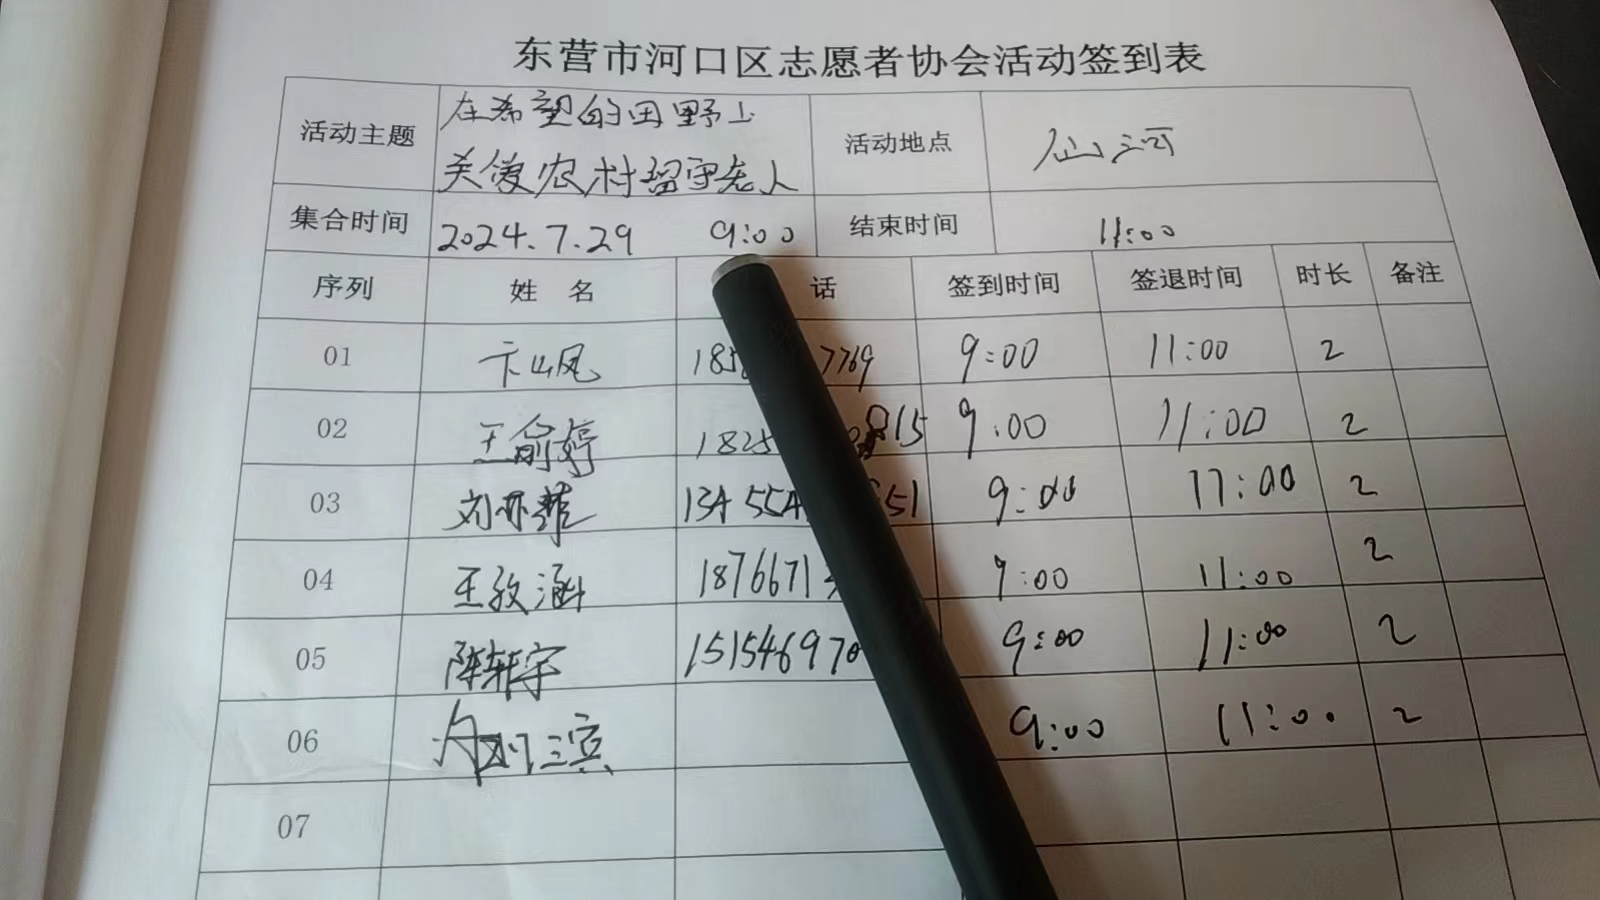 东营市河口区志愿者协会活动签到表
活动主题 在希望的田野上 活动地点 仙河
关爱农村留守老人
集合时间 2024.7.29 9:00 结束时间 11:00
序列 姓名 话 签到时间 签退时间 时长 备注
01 卞山凤 185 7769 9:00 11:00 2
02 王俞婷 1825 815 9:00 11:00 2
03 刘亦菲 134554 51 9:00 11:00 2
04 王孜涵 1876671 9:00 11:00 2
05 陈轩宇 151546970 9:00 11:00 2
06 滨 9:00 11:00 2
07